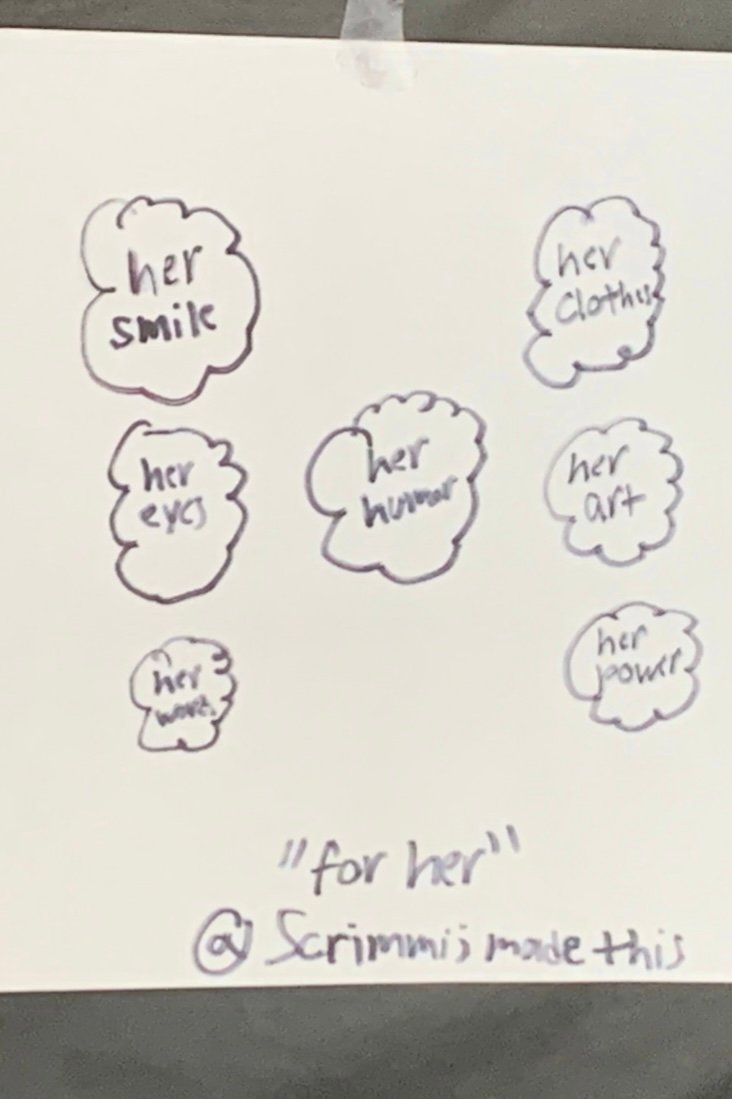 her
smile
her
clothes
her
eyes
her
humor
her
art
her
her
power
"for her"
made this